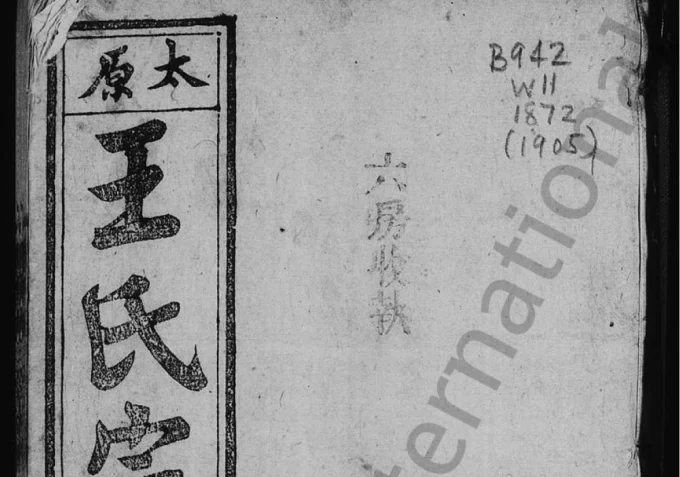 太原
王氏宗
六房收執
B942
W11
1872
(1905)
ernational